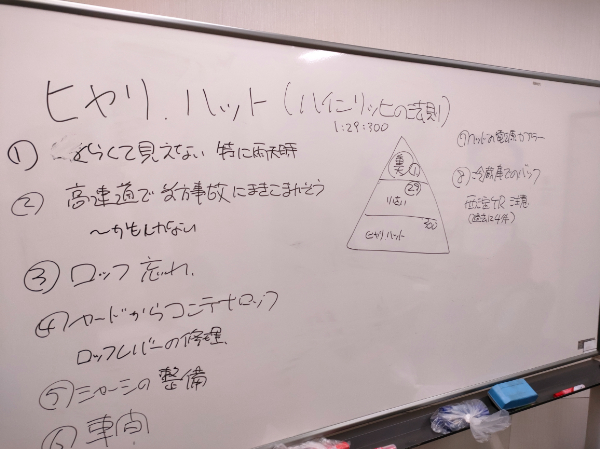 ヒヤリ.ハット(ハインリッヒの法則)
1:29:300
① くらくて見えない 特に雨天時
② 高速道で 事故にまきこまれそう
～かもしれない
③ ロック忘れ.
④ ヤードからコンテナロック
ロックレバーの修理
⑤ シャーシの整備
⑥ 車間
重大 ①
㉙
300
ヒヤリハット
⑦ ヘッドの電源カプラー
⑧ 冷蔵庫でのバック
注意
(過去に4件)